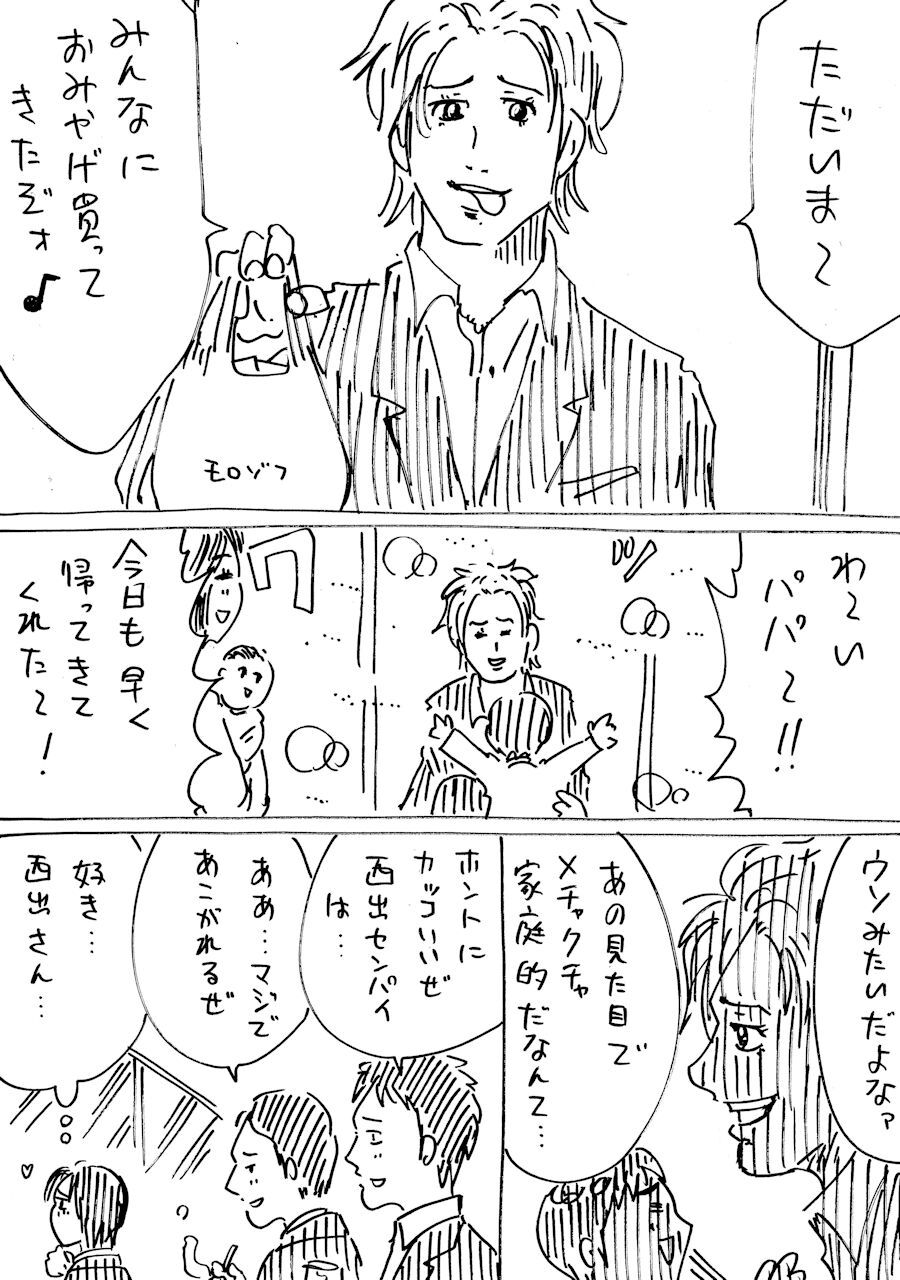 ただいま〜
みんなに
おみやげ買って
きたぞォ♪
モロゾフ
わ〜い
パパ〜!!
今日も早く
帰ってきて
くれた〜!
ウソみたいだよなァ
あの見た目で
メチャクチャ
家庭的だなんて…
ホントに
カッコいいぜ
西出センパイ
は…
ああ…マジで
あこがれるぜ
好き…
西出さん…